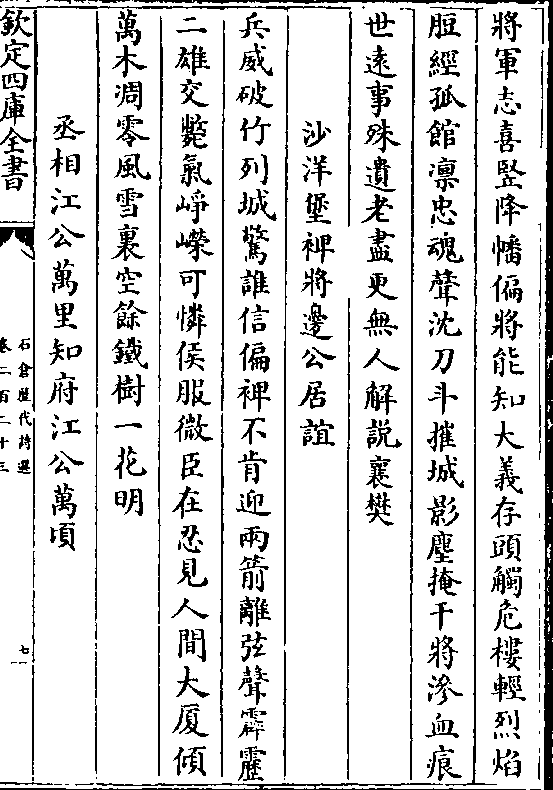 將軍志喜竪降幡偏將能知大義存頭觸危樓輕烈焰
脰經孤館凛忠魂聲沈刀斗摧城影塵掩干將滲血痕
世逺事殊遺老盡更無人解說襄樊
沙洋堡裨將邊公居誼
兵威破竹列城驚誰信偏裨不肯迎兩箭離弦聲霹靂
二雄交斃氣崢嶸可憐侯服微臣在忍見人間大厦傾
萬木凋零風雪裏空餘鐵樹一花明
丞相江公萬里知府江公萬頃
欽定四庫全書
石倉歷代詩選
卷二百二十三
七